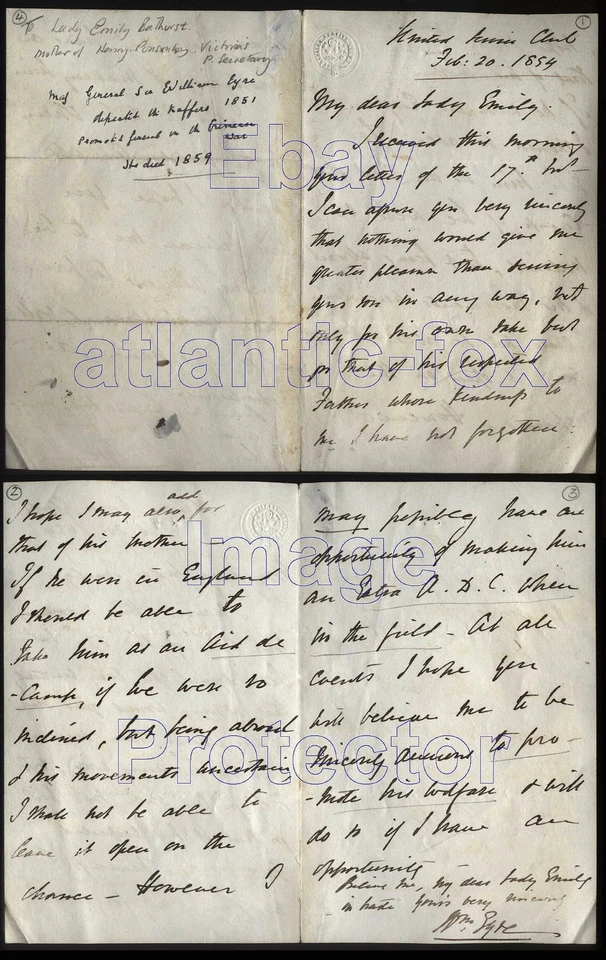 ①
United Service Club
Feb: 20. 1854
My dear Lady Emily.
I received this morning
your letter of the 17th Inst
I can assure you very sincerely
that nothing would give me
greater pleasure than serving
your son in any way, not
only for his own sake but
for that of his respected
Father whose kindness to
me I have not forgotten.
②
I hope I may also, add for
that of his mother
If he were in England
I should be able to
take him as an Aid de
-Camp, if he were so
inclined, but being abroad
& his movements uncertain
I shall not be able to
leave it open on the
chance - However I
③
may possibly have an
opportunity of making him
an Extra A. D. C. when
in the field - At all
events I hope you
will believe me to be
sincerely anxious to pro-
-mote his welfare & will
do so if I have an
opportunity
Believe me, my dear Lady Emily
yours very sincerely
Wm Eyre
④
To Lady Emily Bathurst.
mother of Henry Ponsonby, Victoria's
P. Secretary
Maj General Sir William Eyre
defeated the Kaffers 1851
promoted General in the Crimean
War
died 1859
Ebay
atlantic-fox
Image
Protector